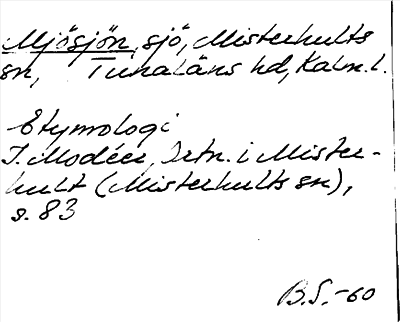 Mjösjön, sjö, Misterhults
sn, Tunaläns hd, Kalm. l.
Etymologi
I. Modéer, Ortn. i Mister-
hult (Misterhults sn),
s. 83
B.S. -60